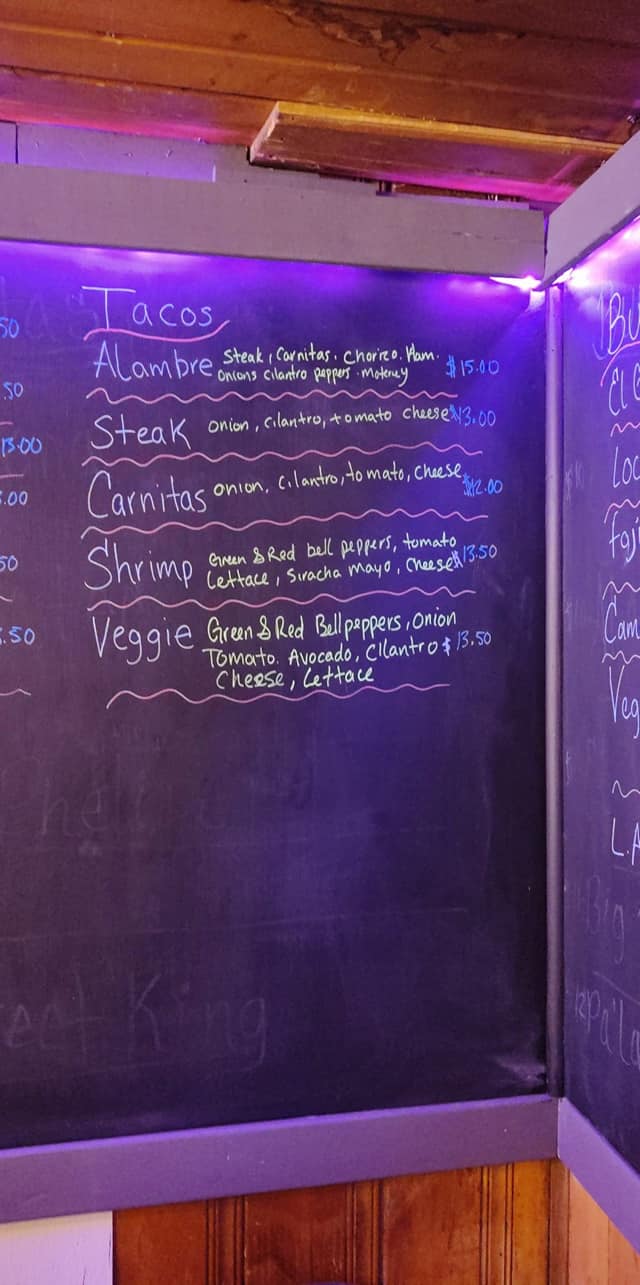 Tacos
Alambre Steak, Carnitas. Chorizo. Ham.
onions cilantro peppers. $15.00
Steak onion, cilantro, tomato cheese $13.00
Carnitas onion, cilantro, tomato, cheese $12.00
Shrimp Green & Red bell peppers, tomato
Lettace, Siracha mayo, cheese $13.50
Veggie Green & Red Bell peppers, Onion
Tomato. Avocado, Cilantro $13.50
Cheese, Lettace
50
.50
13.00
.00
50
.50
El
Veg
L.A
King